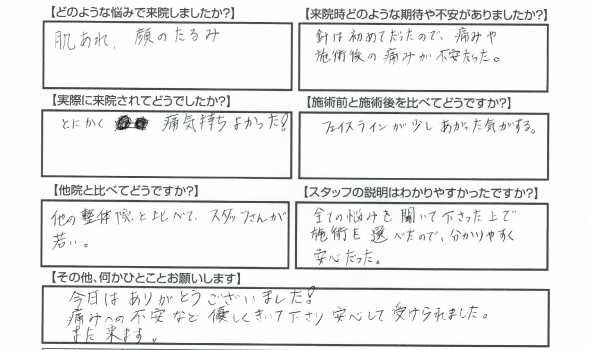 【どのような悩みで来院しましたか?】
肌あれ、顔のたるみ
【来院時どのような期待や不安がありましたか?】
針は初めてだったので、痛みや
施術後の痛みが不安だった。
【実際に来院されてどうでしたか?】
とにかく 痛気持ちよかった!
【施術前と施術後を比べてどうですか?】
フェイスラインが少しあがった気がする。
【他院と比べてどうですか?】
他の整体院と比べて、スタッフさんが
若い。
【スタッフの説明はわかりやすかったですか?】
全ての悩みを聞いて下さった上で
施術を選べたので、分かりやすく
安心だった。
【その他、何かひとことお願いします】
今日はありがとうございました!
痛みへの不安など優しくきいて下さり安心して受けられました。
また来ます。